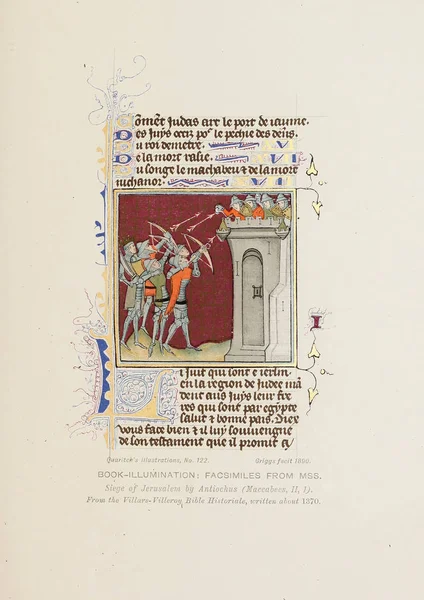 Cōment Judas art le port de iaume.
Des Juys occiz poʳ le pechie des deūs.
Du roi demetre. V
De la mort rasie. VI
Du songe le machabeu & de la mort
nichanor. VI
I
Li Juit qui sont e ierlm̄
en la region de Judee mā
dent aus Juys leur fre
res qui sont par egypte
salut & bonne pais. Diex
vous face bien & il luy souviengne
de son testament que il promist a
Quaritch's illustrations, No. 122. Griggs facit 1890.
BOOK-ILLUMINATION: FACSIMILES FROM MSS.
Siege of Jerusalem by Antiochus (Maccabees, II, 1).
From the Villars-Villeroy Bible Historiale, written about 1370.